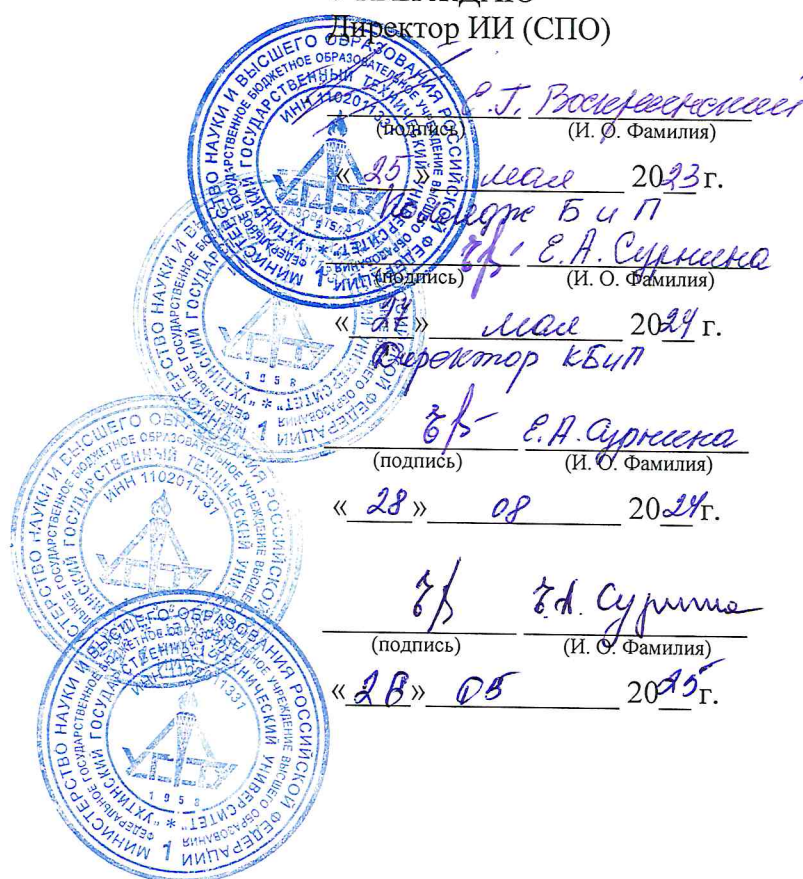 Директор ИИ (СПО)
Е.Г. Воскресенский
(подпись) (И. О. Фамилия)
« 25 » мая 2023 г.
Б и П
Е.А. Сурнина
(подпись) (И. О. Фамилия)
« 27 » мая 2024 г.
Директор КБиП
Е.А. Сурнина
(подпись) (И. О. Фамилия)
« 28 » 08 2024г.
Е.А. Сурнина
(подпись) (И. О. Фамилия)
05 2025г.
МИНИСТЕРСТВО НАУКИ И ВЫСШЕГО ОБРАЗОВАНИЯ РОССИЙСКОЙ ФЕДЕРАЦИИ
ФЕДЕРАЛЬНОЕ ГОСУДАРСТВЕННОЕ БЮДЖЕТНОЕ ОБРАЗОВАТЕЛЬНОЕ УЧРЕЖДЕНИЕ ВЫСШЕГО ОБРАЗОВАНИЯ
"УХТИНСКИЙ ГОСУДАРСТВЕННЫЙ ТЕХНИЧЕСКИЙ УНИВЕРСИТЕТ"
ИНН 1102011331
УГТУ
1958
1